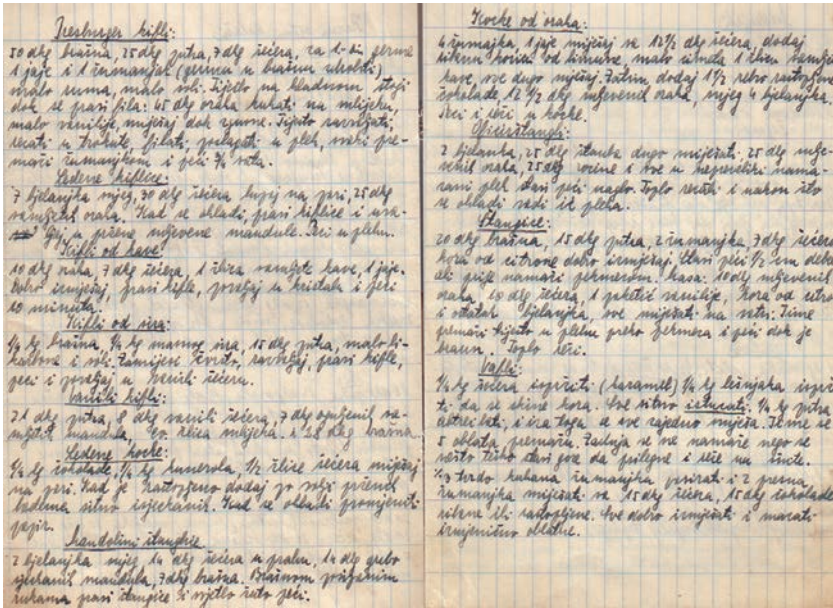 Presburger kifli:
50 dkg brašna, 25 dkg putra, 7 dkg šećera, za 1 din germe
1 jaje i 1 žumanjak (germu u brašnu zdrobiti)
malo ruma, malo soli. Tijesto na hladnom stoji
dok se pravi fila: 45 dkg oraha kuhati na mlijeku,
malo vanilije, miješaj dok zgusne. Tijesto razvaljati,
rezati u trokute, filati, polagati u pleh, svrhi pre-
maži žumanjkom i peći 3/4 sata.
Ledene kiflice:
7 bjelanjka snijeg, 30 dkg šećera kuhaj na pari, 25 dkg
samljetih oraha. Kad se ohladi, pravi kiflice i uva-
ljaj u pržene mljevene mandule. Peci u plehu.
Kifli od kave:
10 dkg oraha, 7 dkg šećera, 1 žlica samljete kave, 1 jaje.
Dobro izmješaj, pravi kifle, povaljaj u kristalu i peci
10 minuta.
Kifli od sira:
1/4 kg brašna, 1/4 kg masnog sira, 15 dkg putra, malo bi-
karbone i soli. Zamijesi čvrsto, razvaljaj, pravi kifle,
peci i povaljaj u vanili šećeru.
Vanili kifli:
21 dkg putra, 8 dkg vanili šećera, 7 dkg oguljenih sa-
mljetih mandula, žlica mlijeka i 28 dkg brašna.
Ledene kocke:
1/4 kg čokolade, 1/4 kg kunerola, 1/2 žlice šećera miješaj
na pari. Kad je rastopljeno dodaj po volji prženih
badema sitno isjeckanih. Kad se ohladi promijeniti
papir.
Mandolini štanglice
2 bjelanjka snijeg 14 dkg šećera u prahu, 14 dkg grubo
sjeckanih mandula, 7 dkg brašna. Brašnom posipanim
rukama pravi štangice i svjetlo žuto peći.
Kocke od oraha:
4 žumanjka, 1 jaje miješaj sa 12 1/2 dkg šećera, dodaj
sitnu koricu od limuna, malo cimeta 1 žlicu samljete
kave, sve dugo miješaj. Zatim dodaj 1 1/2 rebro rastopljene
čokolade, 12 1/2 dkg mljevenih oraha, snijeg 4 bjelanjka.
Peci i reži u kocke.
Oficirštangli:
2 bjelanka, 25 dkg štauba dugo miješati. 25 dkg mlje-
venih oraha, 25 dkg rozina i sve u nama-
zani pleh stavi peći naglo. Toplo rezati i nakon što
se ohladi vadi iz pleha.
Štangice:
20 dkg brašna, 15 dkg putra, 2 žumanjka, 7 dkg šećera
kora od citrone dobro izmješaj. Stavi peći 1/2 cm debelo
ali prije namaži pekmezom. Masa: 10 dkg mljevenih
oraha, 10 dkg šećera, 1 paketić vanilije, kora od citrone
i ostatak bjelanjka, sve miješati na vatri. Time
premaži tijesto u plehu preko pekmeza i peći dok je
braun. Toplo reži.
Vafli:
1/4 kg šećera ispržiti (karamel) 1/4 kg lješnjaka isprži-
ti da se skine kora. Sve sitno istucati. 1/4 kg putra
abtreibati, i iza toga se sve zajedno miješa. Time se
5 oblata premažu. Zadnja se ne namaže nego se
nešto teško stavi gore da prilegne i reže na šnite.
3 tvrdo kuhana žumanjka pasirati i 2 presna
žumanjka miješati sa 15 dkg šećera, 15 dkg čokolade
sitne ili rastopljene. Sve dobro izmješati i mazati
izmjenično oblatne.